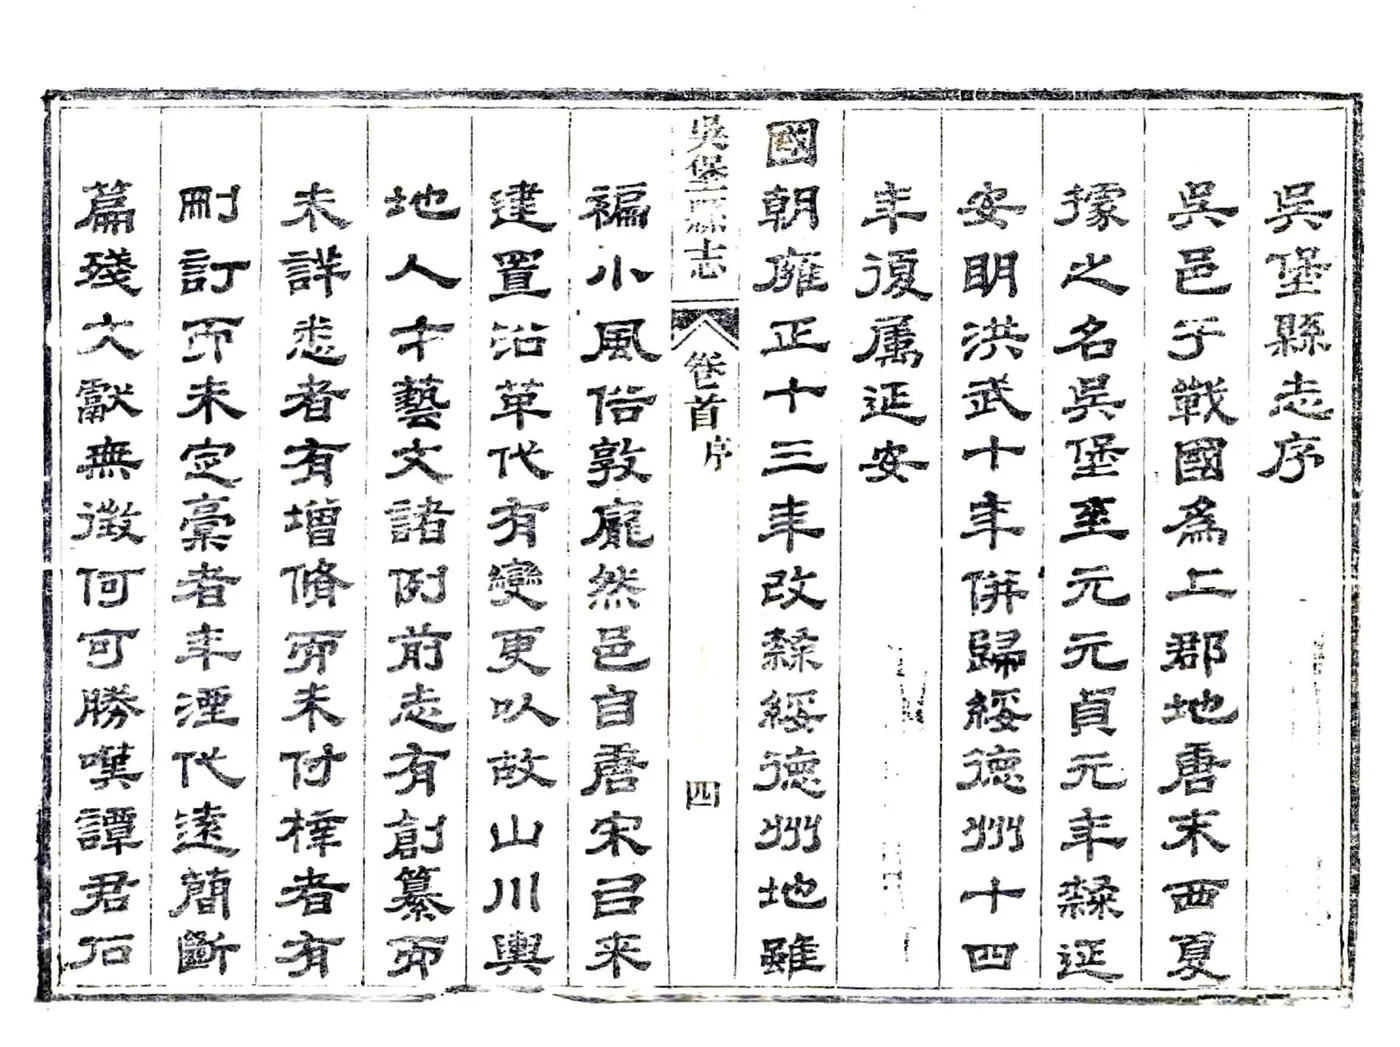 吳堡縣志序
吳邑于戰國為上郡地唐末西夏
據之名吳堡至元元貞元年隸延
安明洪武十年併歸綏德州十四
年復属延安
國朝雍正十三年改隸綏德州地雖
吳堡縣志 卷首 序 四
褊小風俗敦龐然邑自唐宋㠯来
建置沿革代有變更以故山川輿
地人才藝文諸例前志有創纂而
未詳悉者有增脩而未付梓者有
刪訂而未定稾者年湮代遠簡斷
篇殘文獻無徵何可勝嘆譚君石